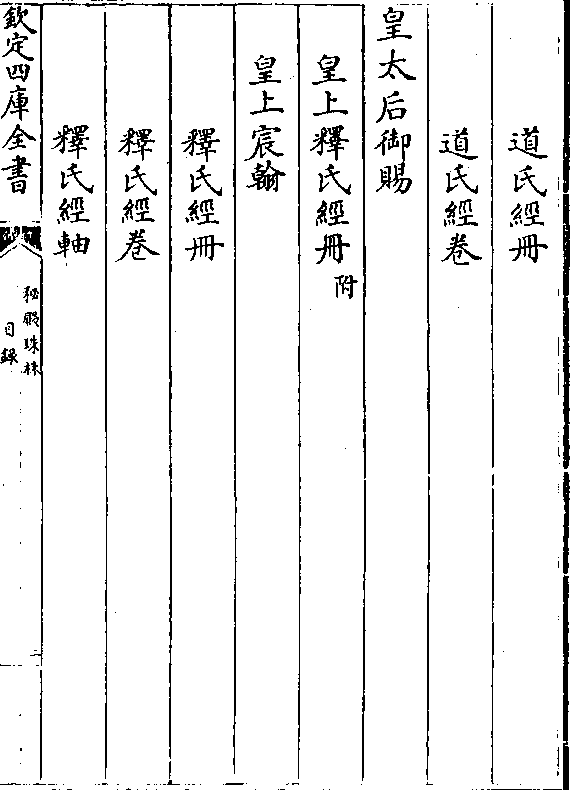 道氏經冊
道氏經卷
皇太后御賜
皇上釋氏經冊附
皇上宸翰
釋氏經冊
釋氏經卷
釋氏經軸
欽定四庫全書
秘殿珠林
目録
二